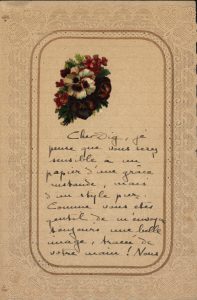 Cher Dia, je
pense que vous serez
sensible à un
papier d'une grâce
mais
d'un style pur.
Comme vous êtes
gentil de m'envoyer
toujours une belle
image, tracée de
votre main ! Nous